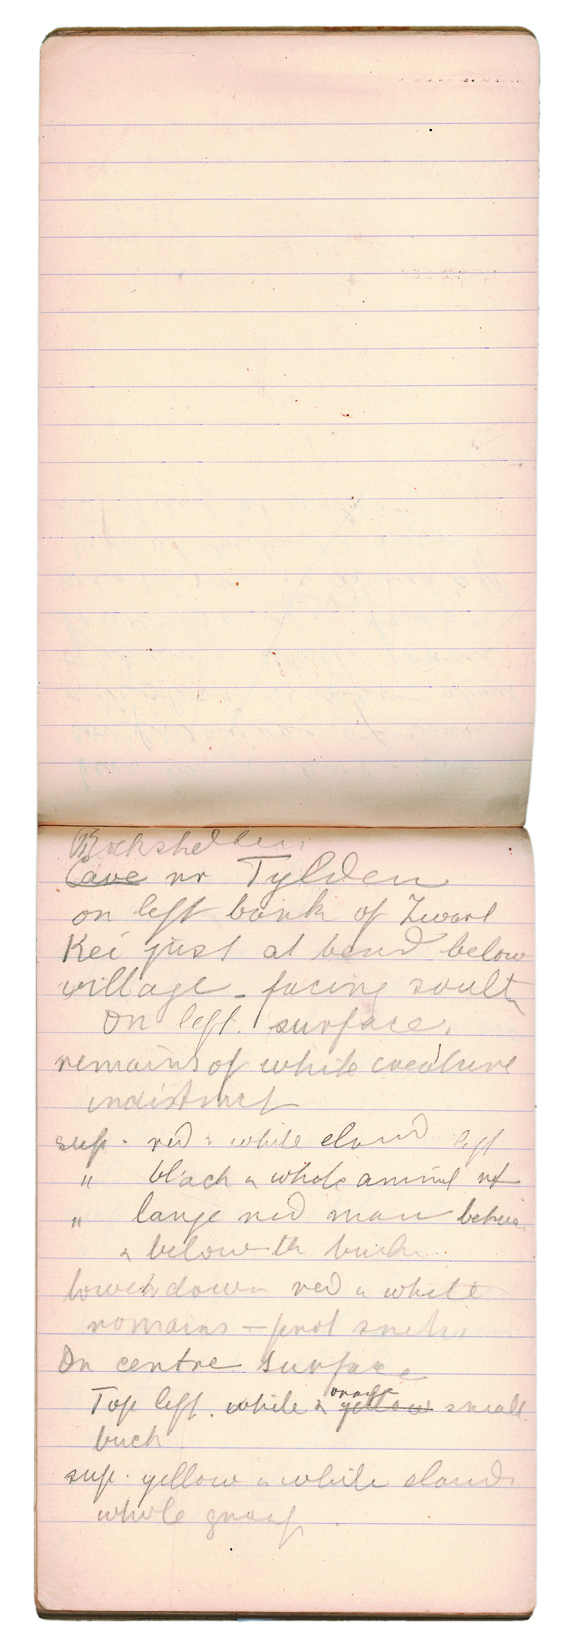 Rockshelter
Cave nr Tylden
on left bank of Zwart
Kei just at bend below
village - facing south
On left surface.
remains of white creature
indistinct
sup. red & white eland left
" black & white animal rt
" large red man
& below th buck
lower down red & white
remains - prob
On centre surface
Top left. white & orange yellow small
buck
sup. yellow & white elands
whole group.